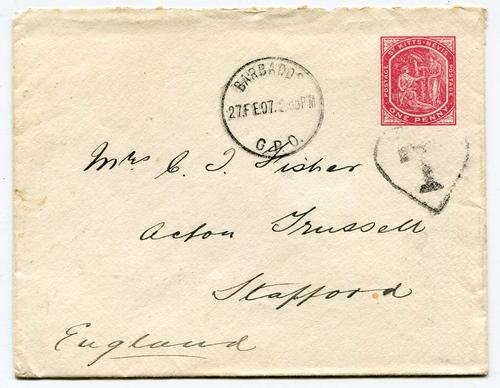 BARBADOS
27.FE.07.
G.P.O.
ST KITTS-NEVIS
POSTAGE
POSTAGE
ONE PENNY
T
Mrs C. J. Fisher
Acton Trussell
Stafford
England